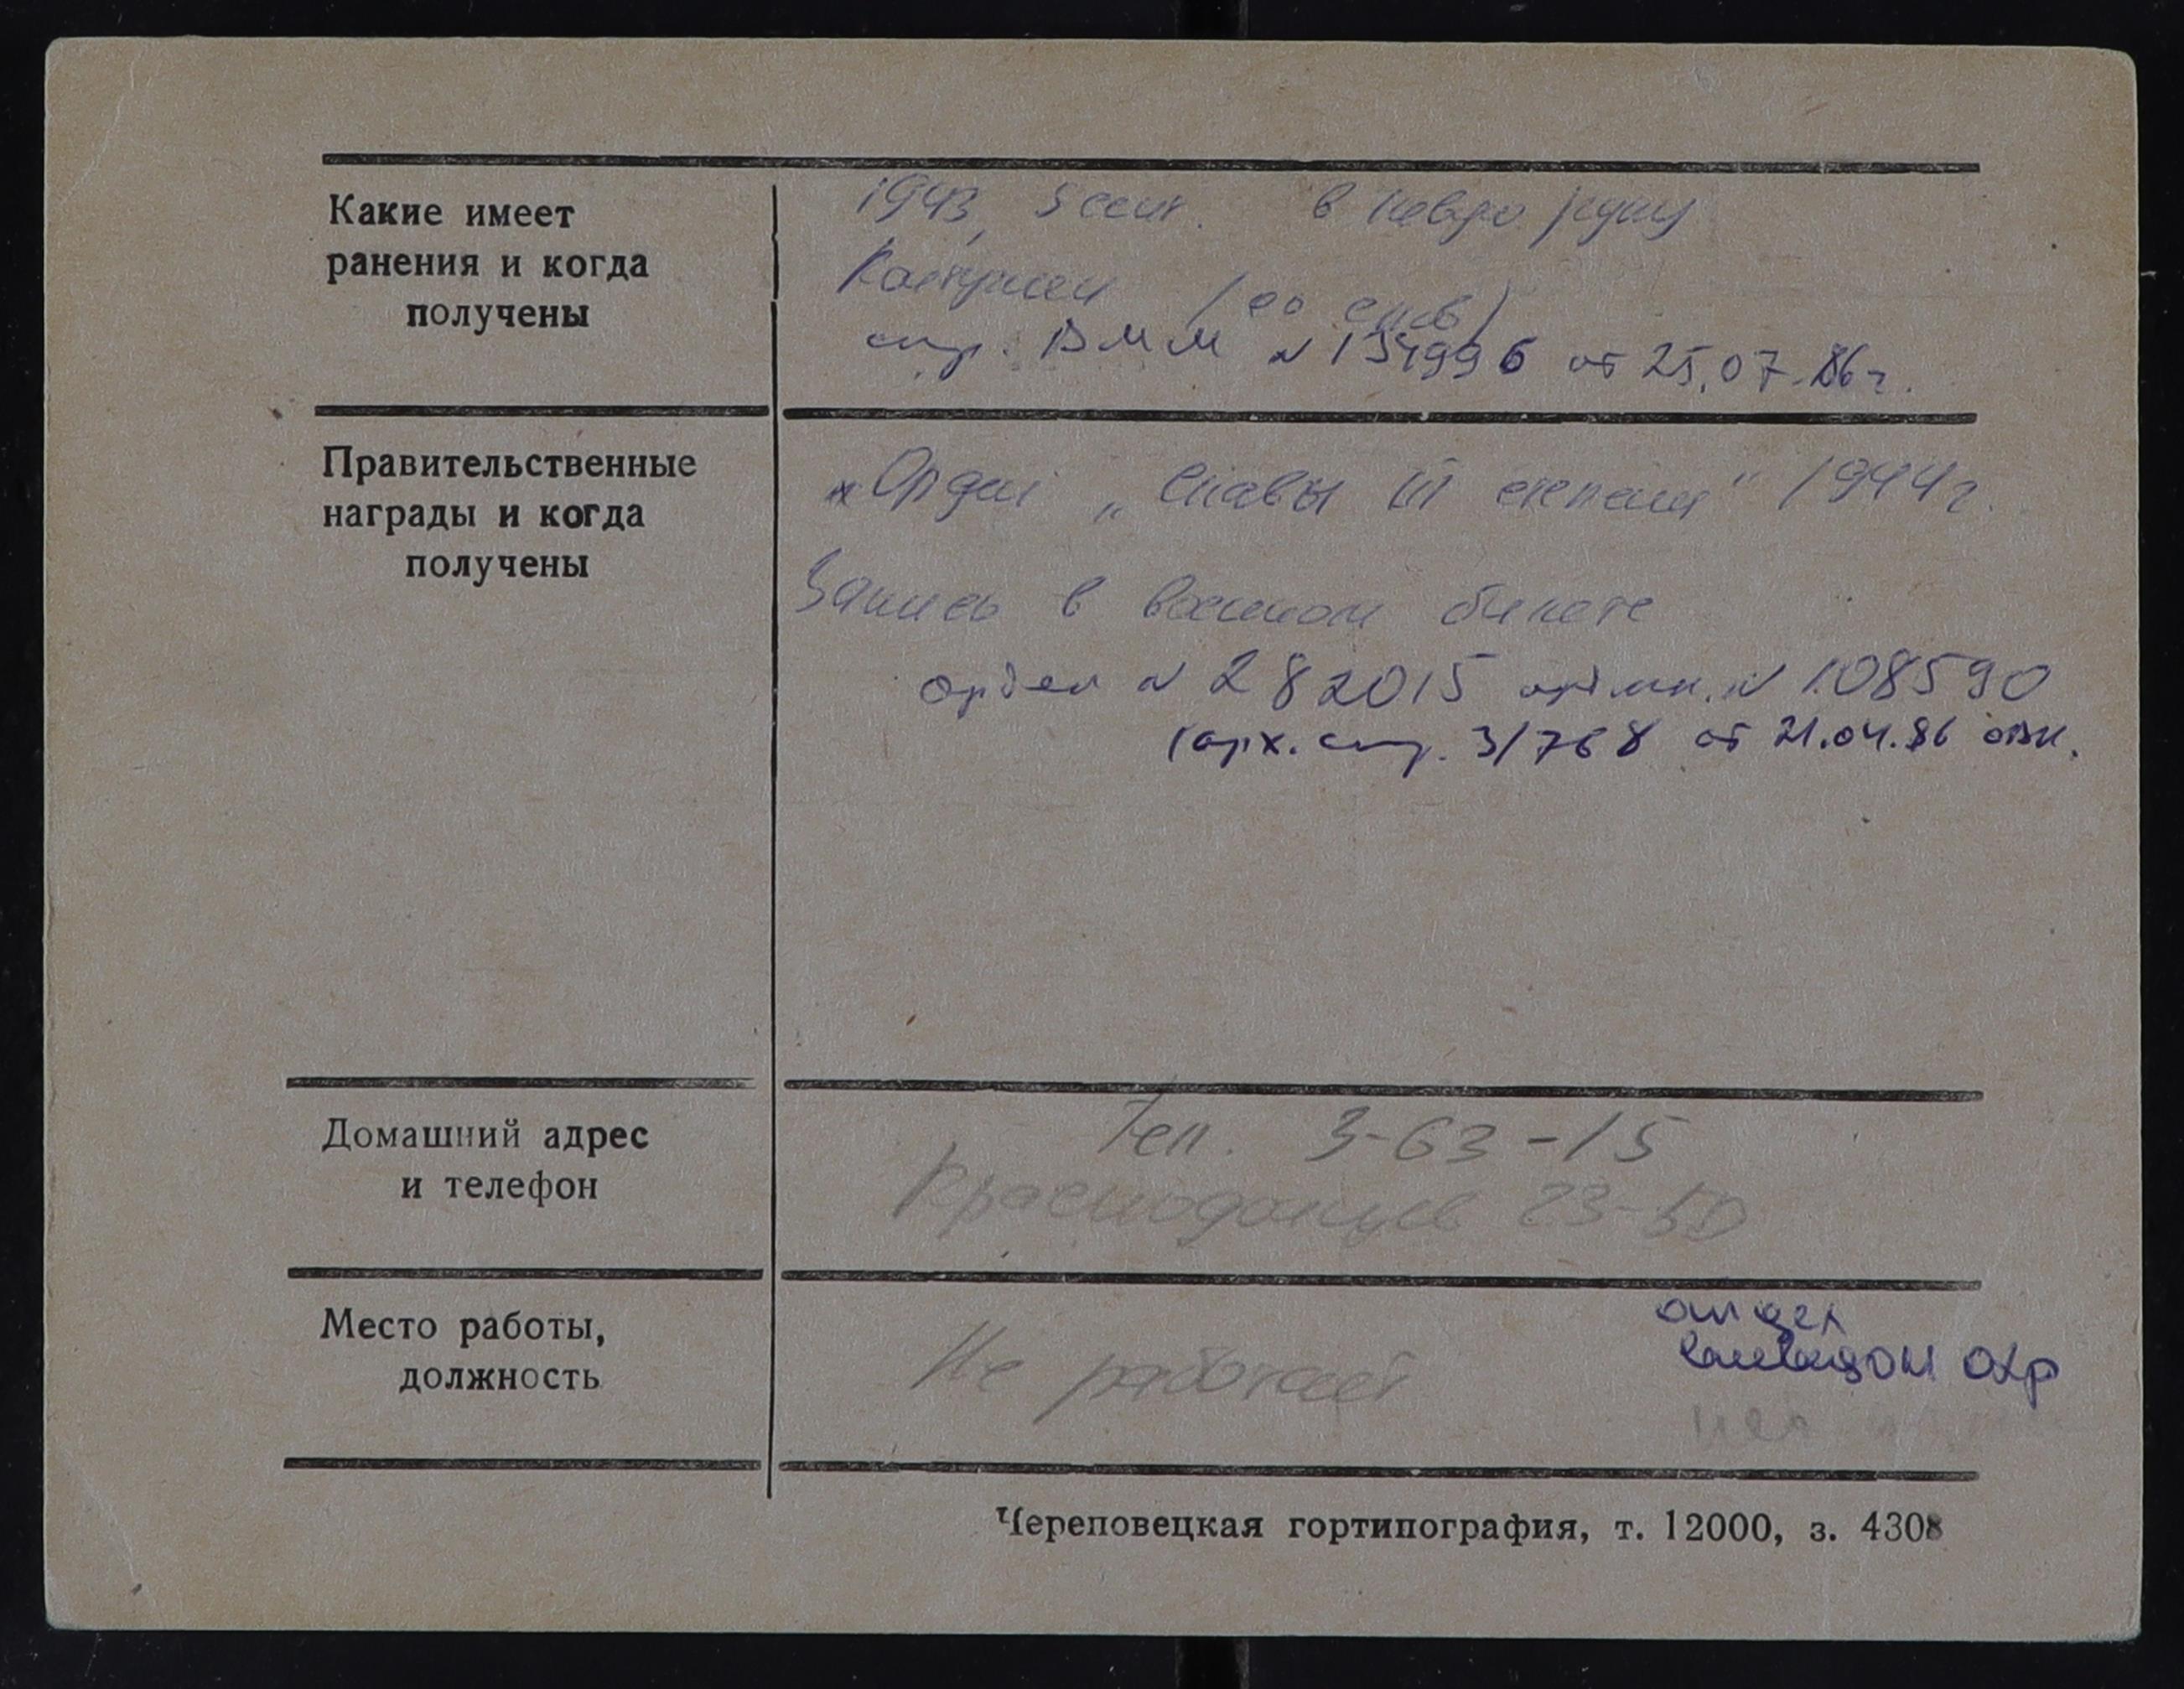 Какие имеет
ранения и когда
получены
1943, 5 сент. в левую руку
Контужен (со слов)
спр. ВММ № 134996 от 25.07.86 г.
Правительственные
награды и когда
получены
Орден „Славы III степени“ 1944 г.
Запись в военном билете
орден № 282015 № 108590
(арх. спр. 3/768 от 21.04.86
Домашний адрес
и телефон
Тел. 3-63-15
Краснодонцев 23-50
Место работы,
должность
Не работает
Череповецкая гортипография, т. 12000, з. 4308